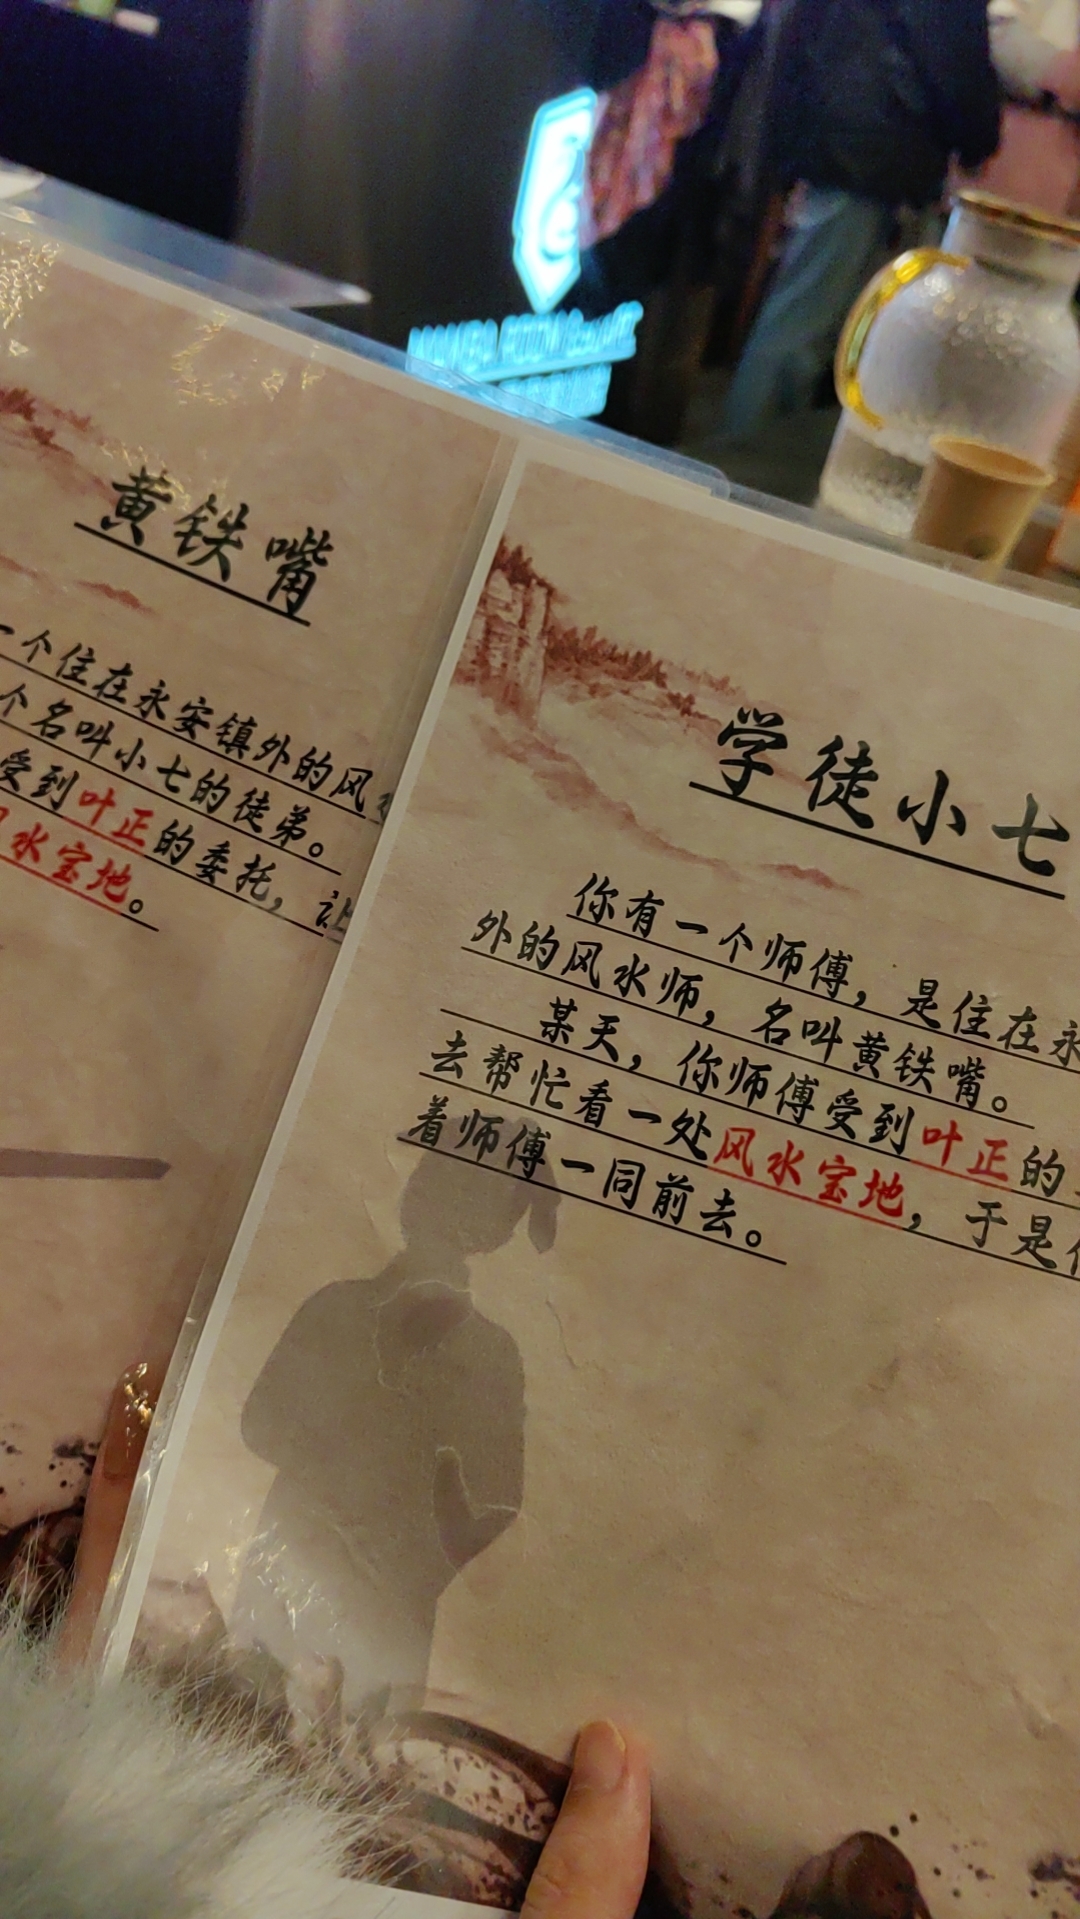 黄铁嘴
一个住在永安镇外的风
个名叫小七的徒弟。
受到叶正的委托，让
水宝地。
学徒小七
你有一个师傅，是住在永
外的风水师，名叫黄铁嘴。
某天，你师傅受到叶正的
去帮忙看一处风水宝地，于是你
着师傅一同前去。